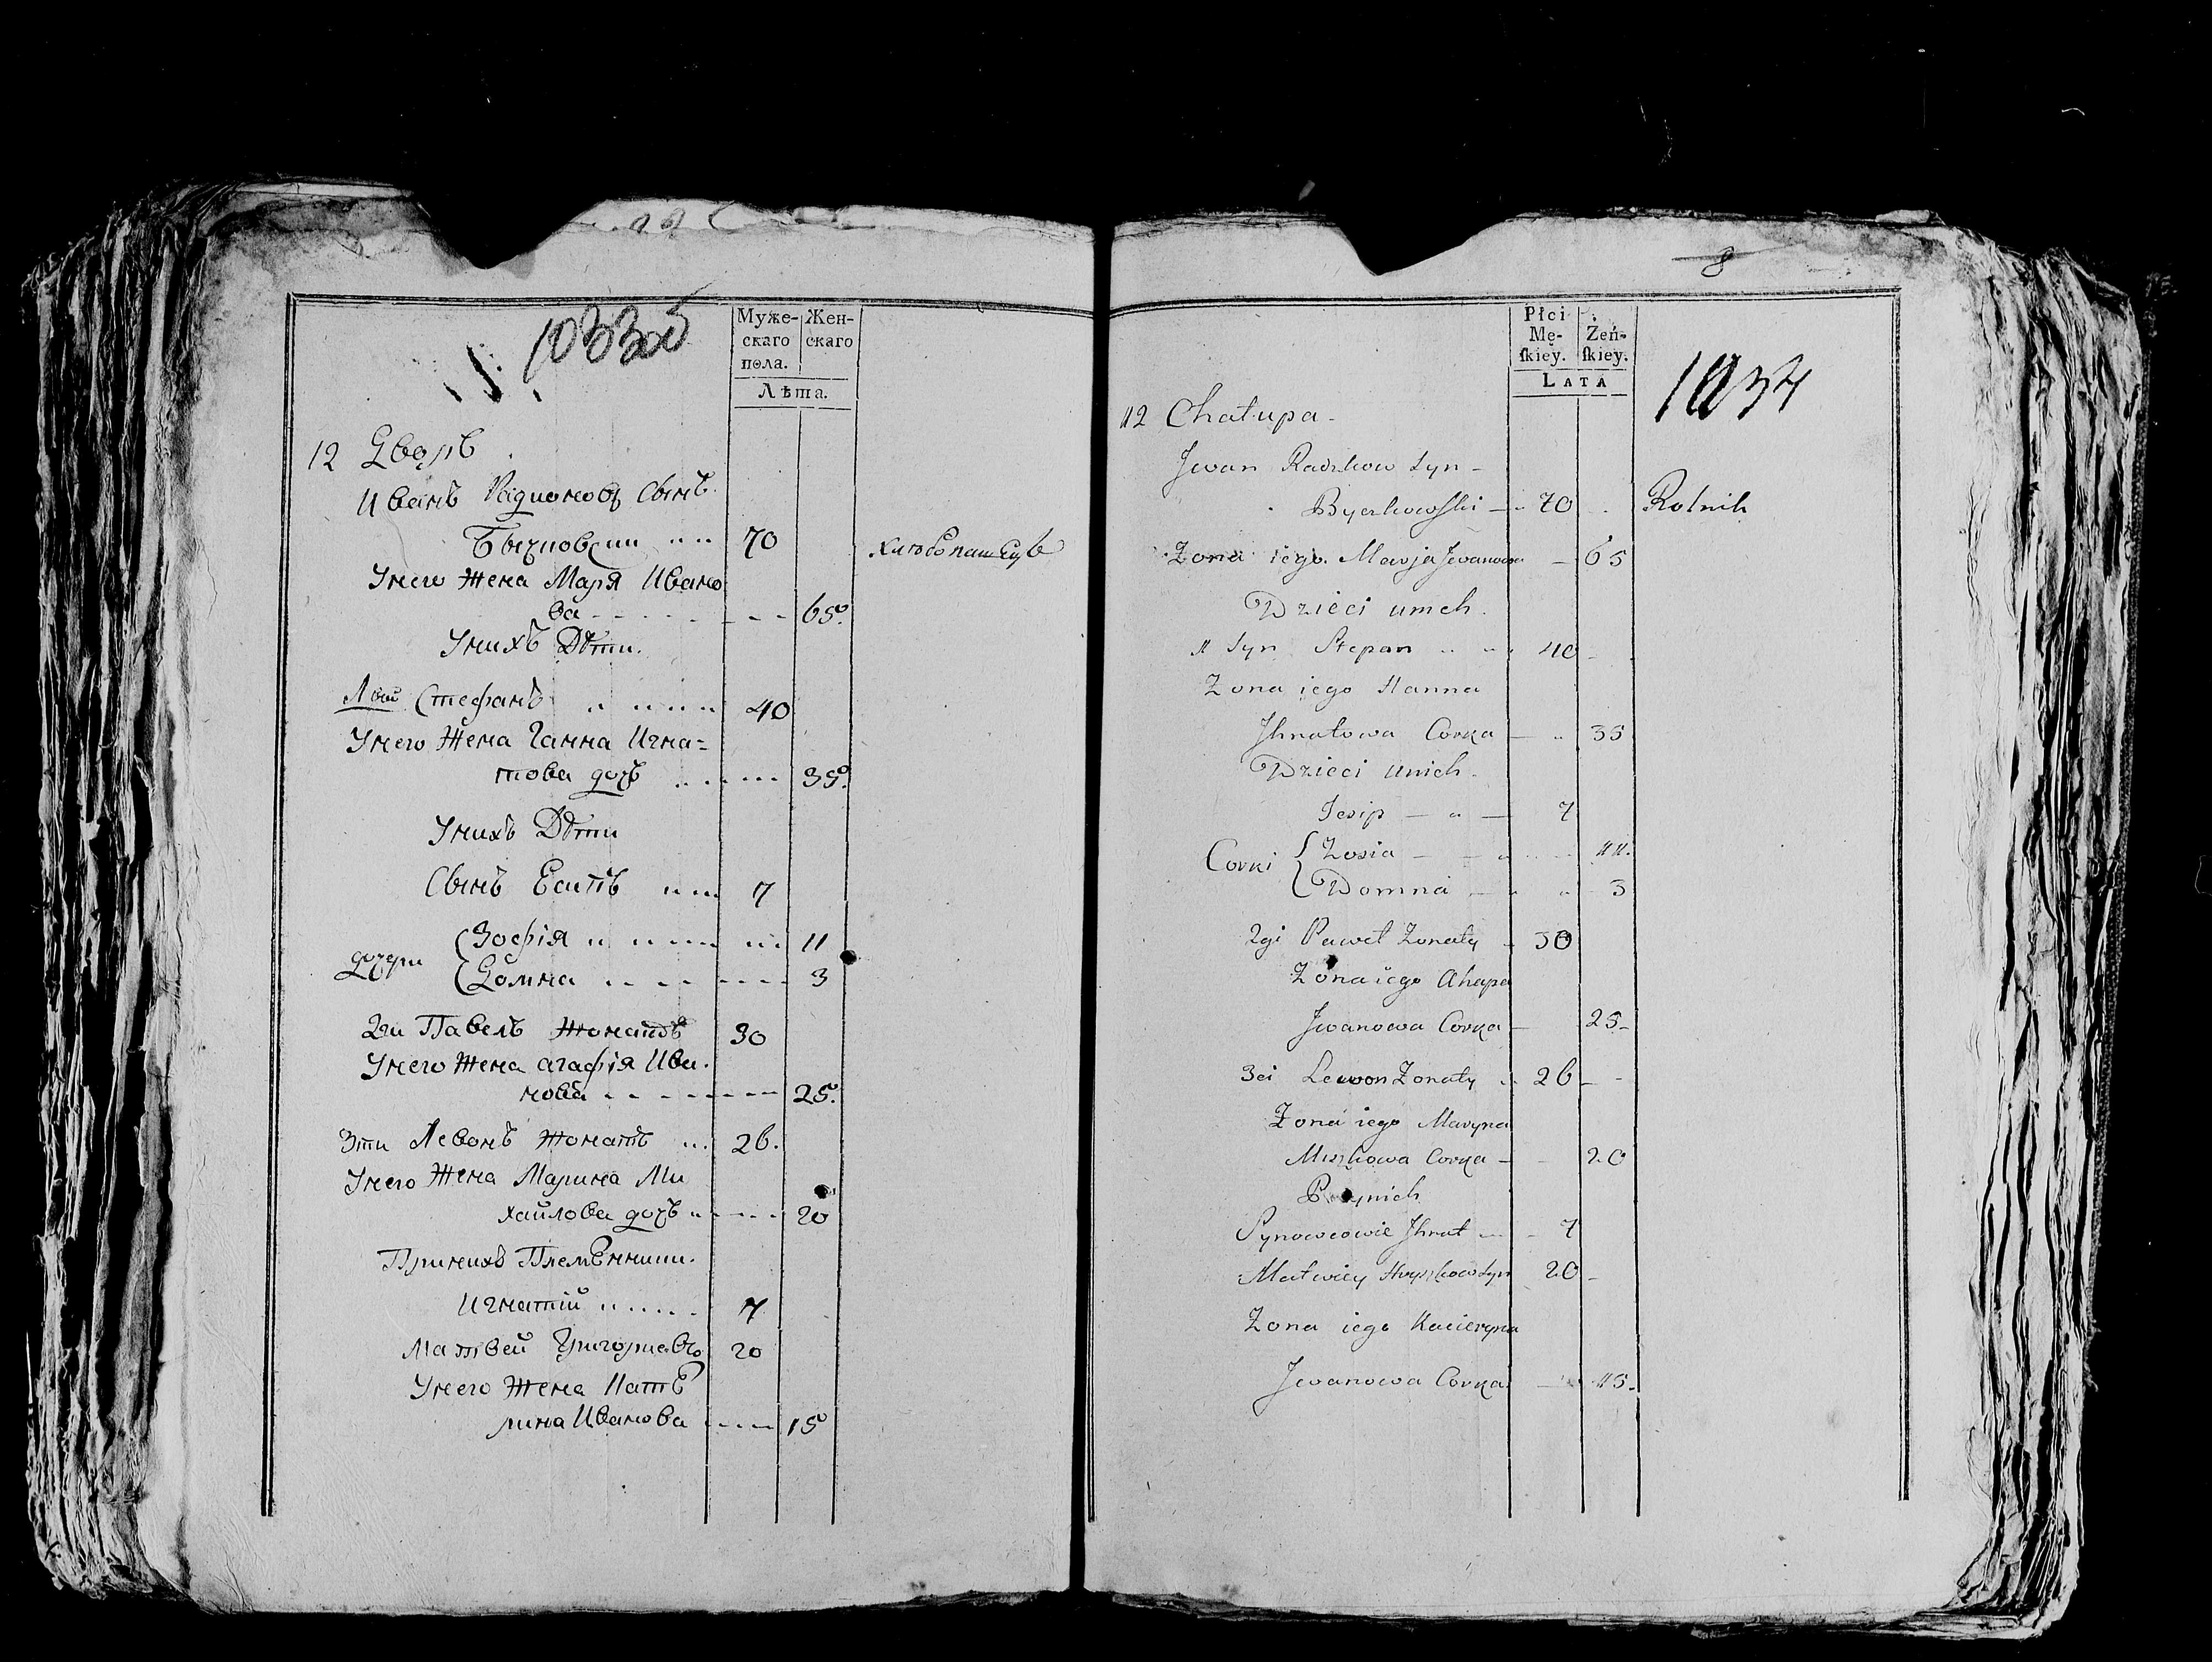 1033об
Муже-
скаго
пола.
Жен-
скаго
Лѣта.
12 Дворъ
Иванъ Радионовъ Сынъ
Бычковски 70 хлѣбопашецъ
Унего Жена Маря Ивано
ва 65
Унихъ Дѣти.
1вый Стефанъ 40
Унего Жена Ганна Игна=
това дочь 35
Унихъ Дѣти
Сынъ Есипъ 7
дочери Зофія 11
Домна 3
2йи Павелъ Жонатъ 30
Унего Жена агафія Ива.
нова 25
3ти Левонъ Жонатъ 26.
Унего Жена Марина Ми
хайлова дочь 20
Принихъ Племѣнники.
Игнатій 7
Матвей Григорьевъ 20
Унего Жена Катѣ
рина Иванова 15
8
Płci
Mę-
ſkiey.
Żeń-
ſkiey.
LATA
1034
12 Chałupa -
Jwan Radzkow Syn -
Byczkowſki - 70 Rolnik
Zona iego Marja Jwanowa - 65
Dzieci unich.
1 Syn Stepan 40
Zona iego Hanna
Jhnatowa Corka - 35
Dzieci unich.
Jesip - 7
Corki Zosia - 11.
Domna - 3
2gi Paweł Zonaty 30
Zona iego Ahapa
Jwanowa Corka - 25-
3ci Lewon Zonaty 26
Zona iego Maryna
Miszkowa Corka - 20
Przynich
Synowcowie Jhnat 7
Matwiey Hryszkow Syn 20
Zona iego Kacieryna
Jwanowa Corka 15.